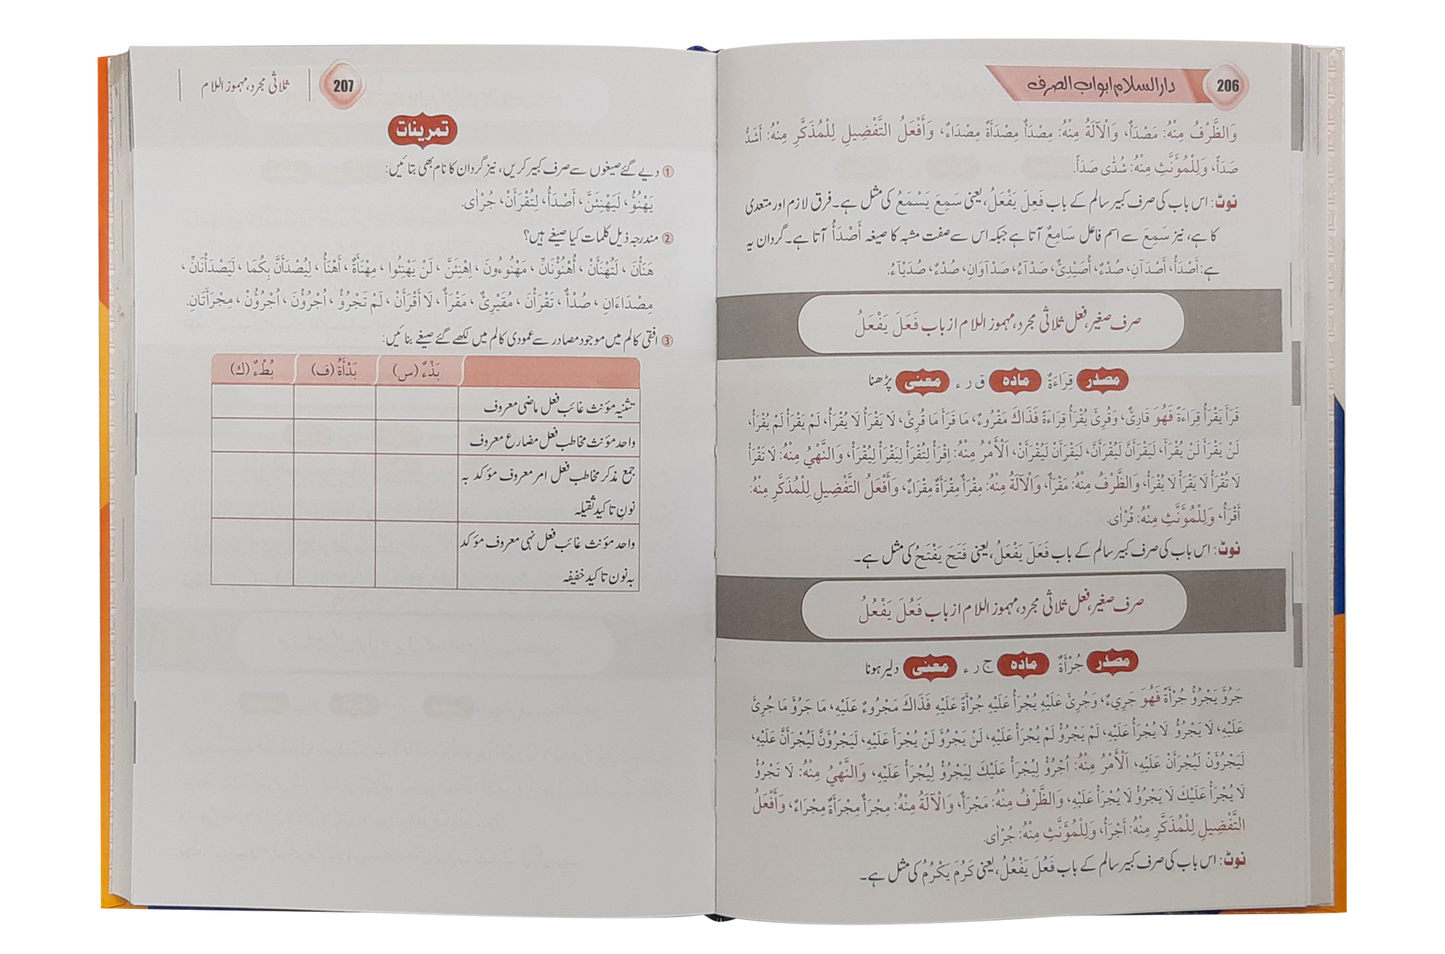 206
دارالسلام ابواب الصرف
وَالظَّرْفُ مِنْهُ: مَصْدَأٌ، وَالْآلَةُ مِنْهُ: مِصْدَأٌ مِصْدَأَةٌ مِصْدَاءٌ، وَأَفْعَلُ التَّفْضِيلِ لِلْمُذَكَّرِ مِنْهُ: أَشَدُّ
صَدَأً، وَلِلْمُؤَنَّثِ مِنْهُ: شُدّٰى صَدَأً.
نوٹ: اس باب کی صرف کبیر سالم کے باب فَعِلَ يَفْعَلُ، یعنی سَمِعَ يَسْمَعُ کی مثل ہے۔ فرق لازم اور متعدی
کا ہے، نیز سَمِعَ سے اسم فاعل سَامِعٌ آتا ہے جبکہ اس سے صفت مشبہ کا صیغہ أَصْدَأُ آتا ہے۔ گردان یہ
ہے: أَصْدَأُ، أَصْدَآنِ، صُدْءٌ، أُصَيْدِئٌ، صَدْآءُ، صَدْآوَانِ، صُدْءٌ، صُدَيْآءُ.
صرف صغیر، فعل ثلاثی مجرد، مہموز اللام از باب فَعَلَ يَفْعَلُ
مصدر قِرَاءَةٌ مادہ ق ر ء معنی پڑھنا
قَرَأَ يَقْرَأُ قِرَاءَةً فَهُوَ قَارِئٌ، وَقُرِئَ يُقْرَأُ قِرَاءَةً فَذَاكَ مَقْرُوءٌ، مَا قَرَأَ مَا قُرِئَ، لَا يَقْرَأُ لَا يُقْرَأُ، لَمْ يَقْرَأْ لَمْ يُقْرَأْ،
لَنْ يَقْرَأَ لَنْ يُقْرَأَ، لَيَقْرَأَنَّ لَيُقْرَأَنَّ، لَيَقْرَأَنْ لَيُقْرَأَنْ، اَلْأَمْرُ مِنْهُ: اِقْرَأْ لِتُقْرَأْ لِيَقْرَأْ لِيُقْرَأْ، وَالنَّهْيُ مِنْهُ: لَا تَقْرَأْ
لَا تُقْرَأْ لَا يَقْرَأْ لَا يُقْرَأْ، وَالظَّرْفُ مِنْهُ: مَقْرَأٌ، وَالْآلَةُ مِنْهُ: مِقْرَأٌ مِقْرَأَةٌ مِقْرَاءٌ، وَأَفْعَلُ التَّفْضِيلِ لِلْمُذَكَّرِ مِنْهُ:
أَقْرَأُ، وَلِلْمُؤَنَّثِ مِنْهُ: قُرْاٰى.
نوٹ: اس باب کی صرف کبیر سالم کے باب فَعَلَ يَفْعَلُ، یعنی فَتَحَ يَفْتَحُ کی مثل ہے۔
صرف صغیر، فعل ثلاثی مجرد، مہموز اللام از باب فَعُلَ يَفْعُلُ
مصدر جُرْأَةٌ مادہ ج ر ء معنی دلیر ہونا
جَرُؤَ يَجْرُؤُ جُرْأَةً فَهُوَ جَرِيءٌ، وَجُرِئَ عَلَيْهِ يُجْرَأُ عَلَيْهِ جُرْأَةً عَلَيْهِ فَذَاكَ مَجْرُوءٌ عَلَيْهِ، مَا جَرُؤَ مَا جُرِئَ
عَلَيْهِ، لَا يَجْرُؤُ لَا يُجْرَأُ عَلَيْهِ، لَمْ يَجْرُؤْ لَمْ يُجْرَأْ عَلَيْهِ، لَنْ يَجْرُؤَ لَنْ يُجْرَأَ عَلَيْهِ، لَيَجْرُؤَنَّ لَيُجْرَأَنَّ عَلَيْهِ،
لَيَجْرُؤَنْ لَيُجْرَأَنْ عَلَيْهِ، اَلْأَمْرُ مِنْهُ: اُجْرُؤْ لِيُجْرَأْ عَلَيْكَ لِيَجْرُؤْ لِيُجْرَأْ عَلَيْهِ، وَالنَّهْيُ مِنْهُ: لَا تَجْرُؤْ
لَا يُجْرَأْ عَلَيْكَ لَا يَجْرُؤْ لَا يُجْرَأْ عَلَيْهِ، وَالظَّرْفُ مِنْهُ: مَجْرَأٌ، وَالْآلَةُ مِنْهُ: مِجْرَأٌ مِجْرَأَةٌ مِجْرَاءٌ، وَأَفْعَلُ
التَّفْضِيلِ لِلْمُذَكَّرِ مِنْهُ: أَجْرَأُ، وَلِلْمُؤَنَّثِ مِنْهُ: جُرْاٰى.
نوٹ: اس باب کی صرف کبیر سالم کے باب فَعُلَ يَفْعُلُ، یعنی كَرُمَ يَكْرُمُ کی مثل ہے۔
207
ثلاثی مجرد، مہموز اللام
تمرینات
① دیے گئے صیغوں سے صرف کبیر کریں، نیز گردان کا نام بھی بتائیں:
يَهْنُؤُ، لَيَهْنِئَنَّ، أَصْدَأُ، لِتُقْرَأَنْ، جُرْاٰى.
② مندرجہ ذیل کلمات کیا صیغے ہیں؟
هَنَأْنَ ، لَتُهْنَأَنْ ، أُهْنُؤْنَانِّ ، مَهْنُوءُونَ ، اِهْنِئَنَّ ، لَنْ يَهْنِئُوا ، مِهْنَأَةٌ ، أَهْنَأُ ، لِيُصْدَأَنَّ بِكُمَا ، لَيَصْدَأْنَانِّ ،
مِصْدَاءَانِ ، صُدْأٌ ، تَقْرَأْنَ ، مُقَيْرِئٌ ، مَقْرَأٌ ، لَا أَقْرَأَنْ ، لَمْ تَجْرُؤْ ، اُجْرُؤْنَ ، اُجْرُؤُنْ ، مِجْرَأَتَانِ.
③ افقی کالم میں موجود مصادر سے عمودی کالم میں لکھے گئے صیغے بنائیں:
بَذْءٌ (س) بَدْأَةٌ (ف) بُطْءٌ (ك)
تثنیہ مؤنث غائب فعل ماضی معروف
واحد مؤنث مخاطب فعل مضارع معروف
جمع مذکر مخاطب فعل امر معروف مؤکد بہ
نون تاکید ثقیلہ
واحد مؤنث غائب فعل نہی معروف مؤکد
بہ نون تاکید خفیفہ